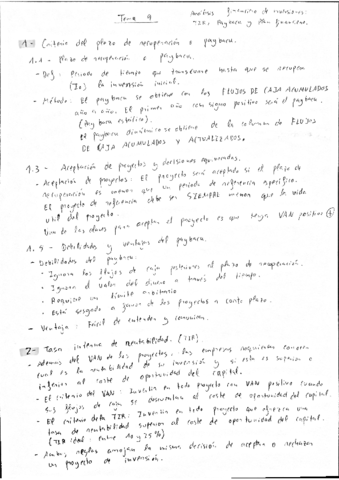 Tema 9
Análisis Financiero de inversiones:
TIR, Payback y Plan financiero.
1- Criterio del plazo de recuperación o payback.
1.1 - Plazo de recuperación o Payback.
- Def: Periodo de tiempo que transcurre hasta que se recupera
(Io) la inversión inicial.
- Método: El payback se obtiene con los FLUJOS DE CAJA ACUMULADOS
año a año. El primer año con signo positivo será el payback.
(Payback estático).
El payback dinámico se obtiene de la columna de FLUJOS
DE CAJA ACUMULADOS Y ACTUALIZADOS.
1.3 - Aceptación de proyectos y decisiones equivocadas.
- Aceptación de proyectos: El proyecto será aceptado si el plazo de
recuperación es menor que un periodo de referencia específico.
El periodo de referencia debe ser SIEMPRE menor que la vida
util del proyecto.
Una de las claves para aceptar el proyecto es que tenga VAN positivo (+)
1.5 - Debilidades y ventajas del payback.
- Debilidades del payback:
- Ignora los flujos de caja posteriores al plazo de recuperación.
- Ignora el valor del dinero a través del tiempo.
- Requiere un límite arbitrario
- Está sesgado a favor de los proyectos a corto plazo.
- Ventaja: Fácil de entender y comunicar.
2- Tasa interna de rentabilidad. (TIR)
- Además del VAN de los proyectos, las empresas requieren conocer
cual es la rentabilidad de su inversión y si esta es superior o
inferior al coste de oportunidad del capital.
- El criterio del VAN: Invertir en todo proyecto con VAN positivo cuando
sus flujos de caja se descuentan al coste de oportunidad del capital.
- El criterio de la TIR: Invertir en todo proyecto que ofrezca una
tasa de rentabilidad superior al coste de oportunidad del capital.
(TIR ideal: entre 10 y 25%)
- Ambas reglas arrojan la misma decisión de aceptar o rechazar
un proyecto de inversión.